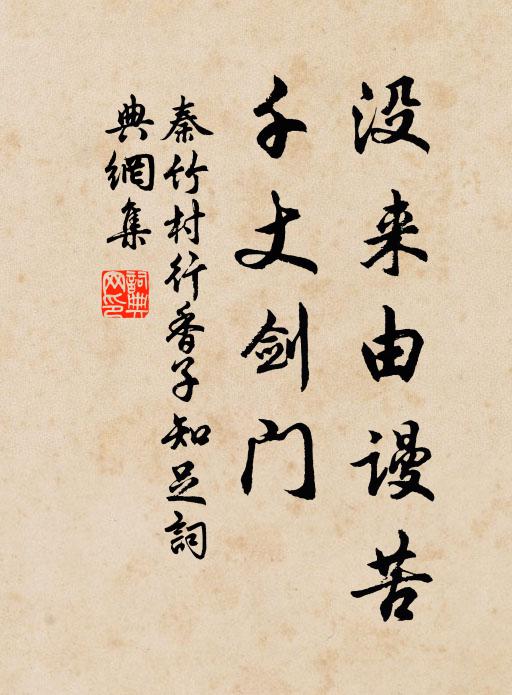 没来由谩苦
千丈剑门
秦竹村行香子知足詞
典網集
詞典网印